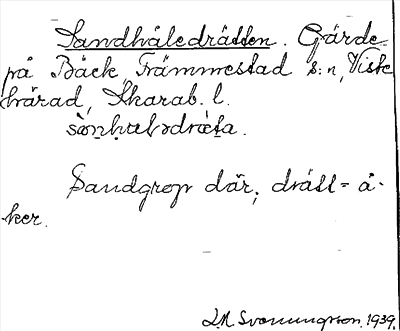 Sandhåledrätten. Gärde
på Bäck, Främmestad s:n, Viste
härad, Skarab. l.
sànhɷlədrɛ̀ta.
Sandgrop där; drätt = å-
ker.
Svenungsson. 1939.